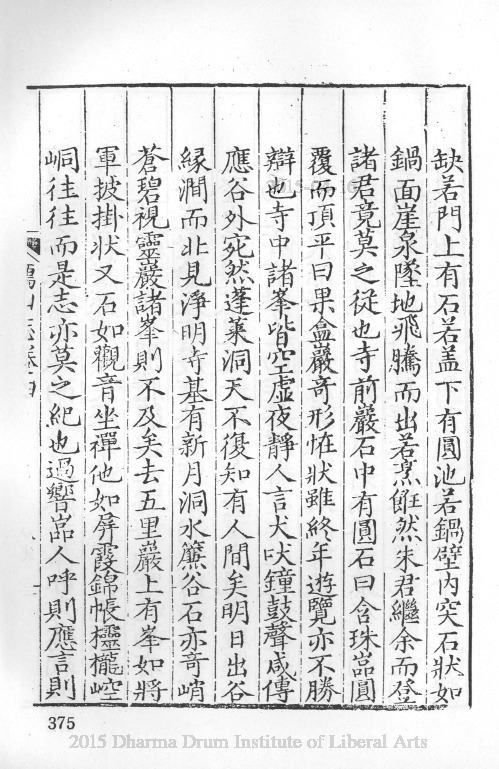 缺若門上有石若盖下有圓池若鍋壁內突石狀如
鍋面崖泉墜地飛騰而出若烹飪然朱君繼余而登
諸君竟莫之從也寺前巖石中有圓石曰含珠嵓圓
覆而頂平曰果盒巖奇形恠狀雖終年遊覽亦不勝
辯也寺中諸峯皆空虛夜靜人言犬吠鐘鼓聲咸傳
應谷外宛然蓬萊洞天不復知有人間矣明日出谷
緣澗而北見淨明寺基有新月洞水簾谷石亦奇峭
蒼碧視靈巖諸峯則不及矣去五里巖上有峯如將
軍披掛狀又石如觀音坐禪他如屏霞錦帳欞櫳崆
峒往往而是志亦莫之紀也過響嵓人呼則應言則
375
2015 Dharma Drum Institute of Liberal Arts